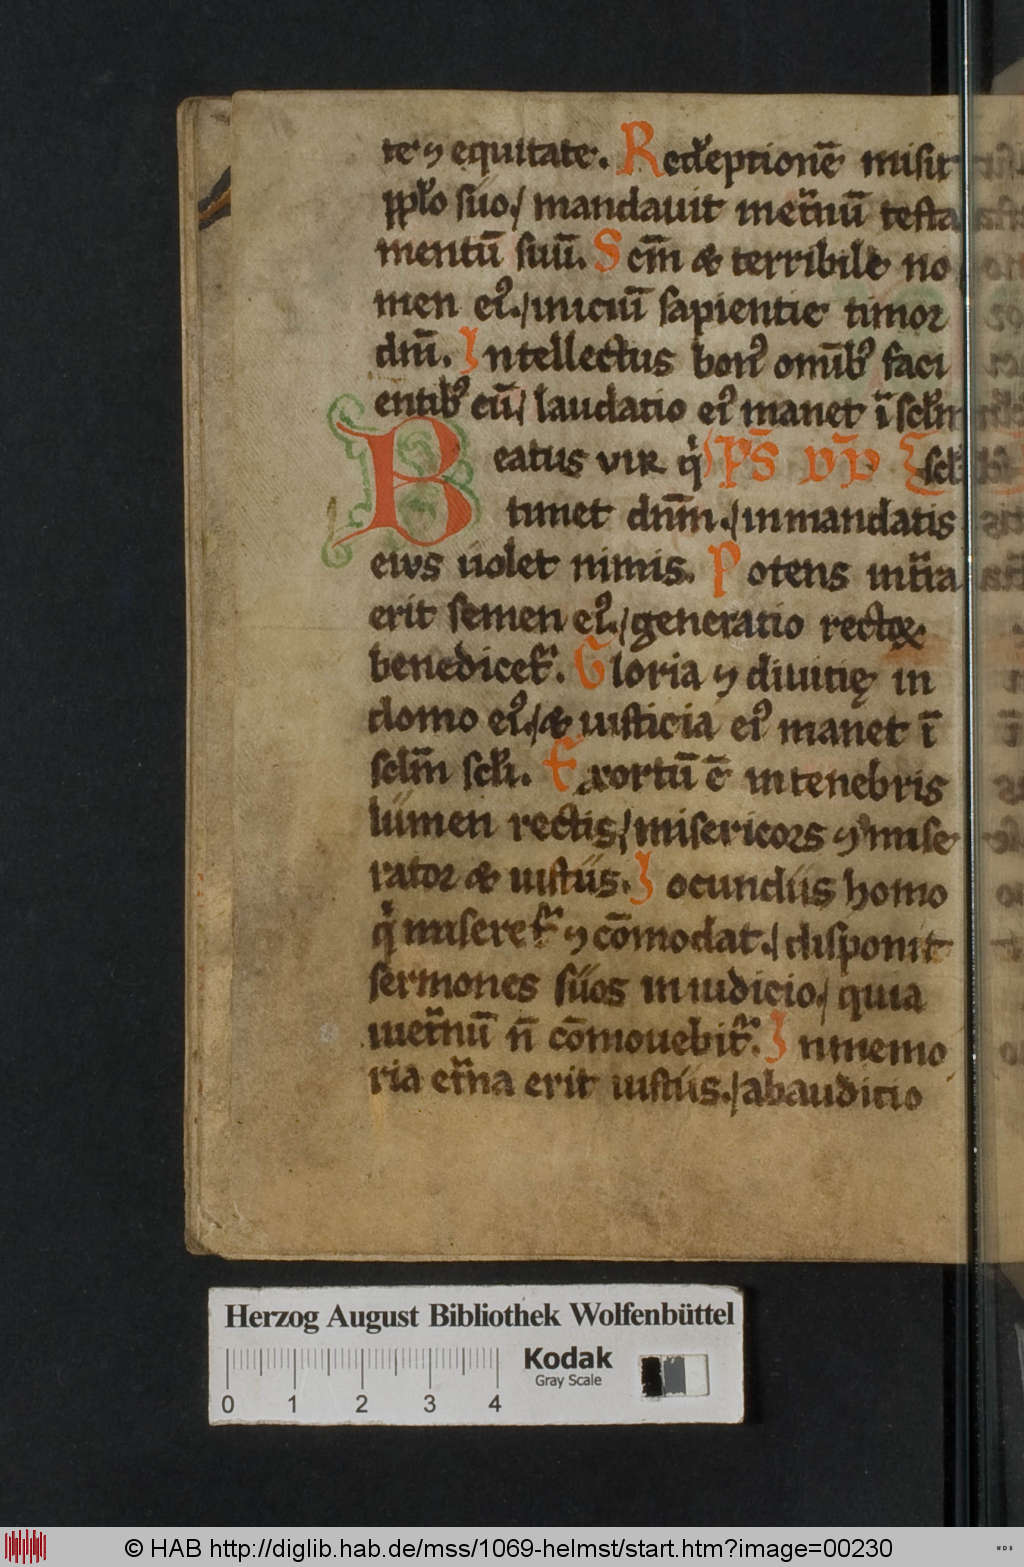 te ⁊ equitate. Redẽptionẽ misit
pplo suo / mandauit inet̃nũ testa
mentũ suũ. Scm̃ & terribile no
men eiꝰ. / iniciũ sapientie timor
dn̄i. Intellectus bonꝰ omĩbꝰ faci
entibꝰ eũ / laudatio eiꝰ manet ĩ sclm
Beatus vir qͥ
timet dnm̃. / in mandatis
eius uolet nimis. Potens int̃ra
erit semen eiꝰ. / generatio rectoꝝ
benedicet᷑. Gloria ⁊ diuitię in
domo eiꝰ. / & iusticia eiꝰ manet ĩ
sclm̃ scli. Exortũ ẽ in tenebris
lumen rectis / misericors ⁊ mise
rator & iustus. Iocundus homo
qͥ miseret᷑ ⁊ cõmodat. / disponit
sermones suos in iudicio / quia
inet̃nũ ñ cõmouebit᷑. In memo
ria et̃na erit iustus. / ab auditio
Herzog August Bibliothek Wolfenbüttel
Kodak
Gray Scale
0 1 2 3 4
© HAB http://diglib.hab.de/mss/1069-helmst/start.htm?image=00230